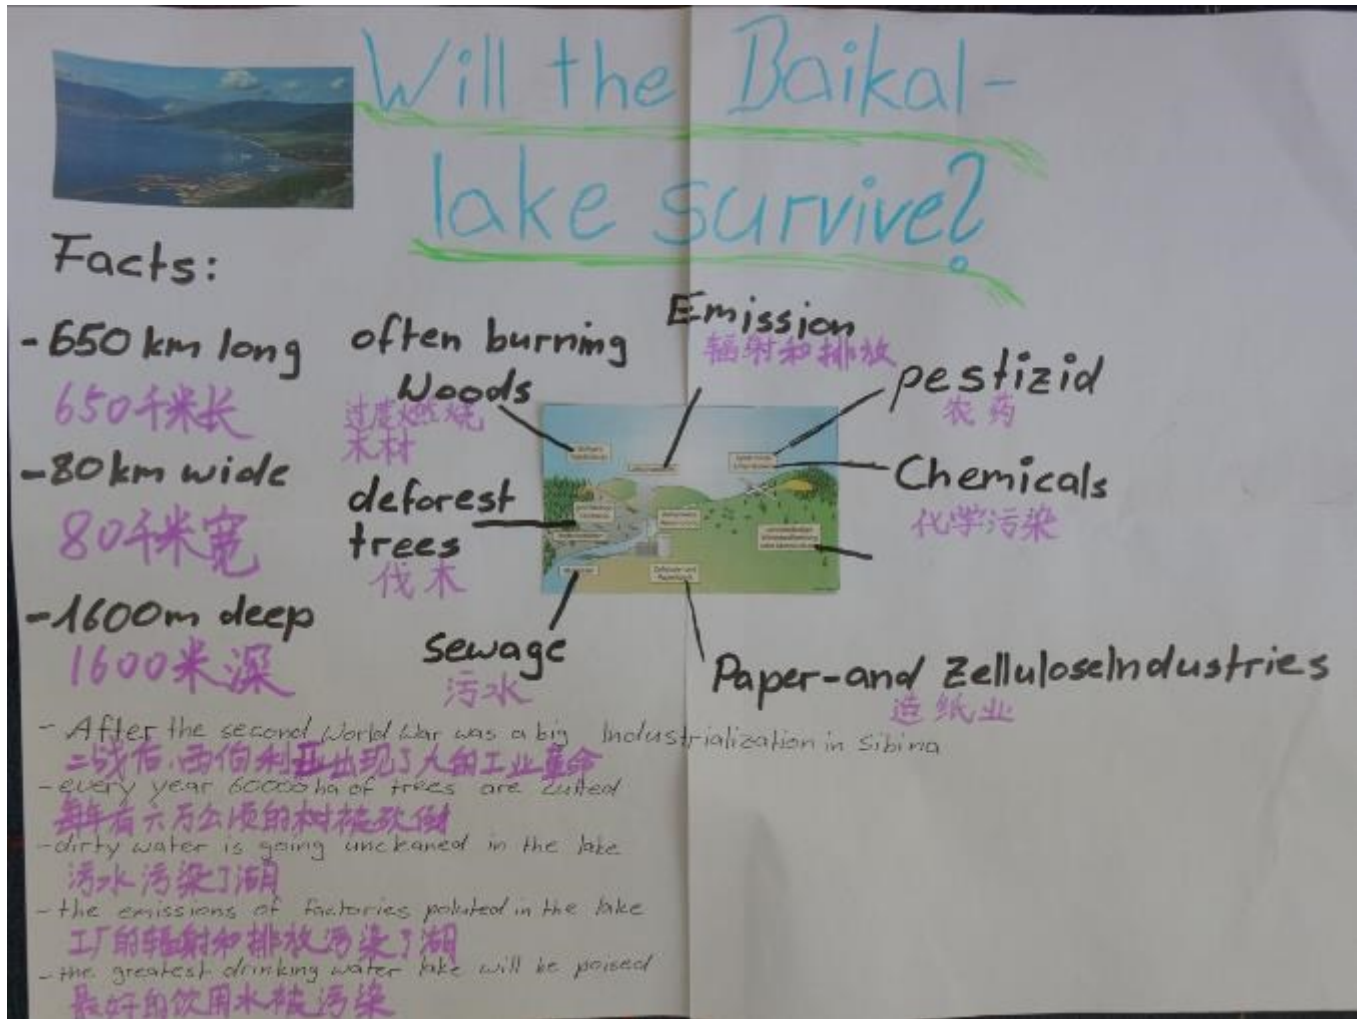 Will the Baikal-
lake survive?
Facts:
-650 km long
650千米长
-80 km wide
80千米宽
-1600m deep
1600米深
often burning
Woods
过度燃烧
木材
deforest
trees
伐木
sewage
污水
Emission
辐射和排放
pestizid
农药
Chemicals
化学污染
Paper-and ZelluloseIndustries
造纸业
- After the second World War was a big Industrialization in Sibiria
二战后,西伯利亚出现了大的工业革命
- every year 60000 ha of trees are cutted
每年有六万公顷的树被砍倒
-dirty water is going uncleaned in the lake
污水污染了湖
- the emissions of factories poluted in the lake
工厂的辐射和排放污染了湖
- the greatest drinking water lake will be poised
最好的饮用水被污染